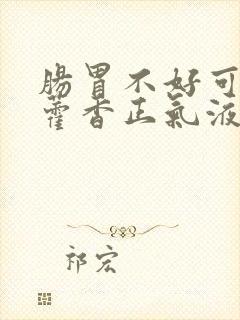 肠胃不好可
藿香正气液
祁宏